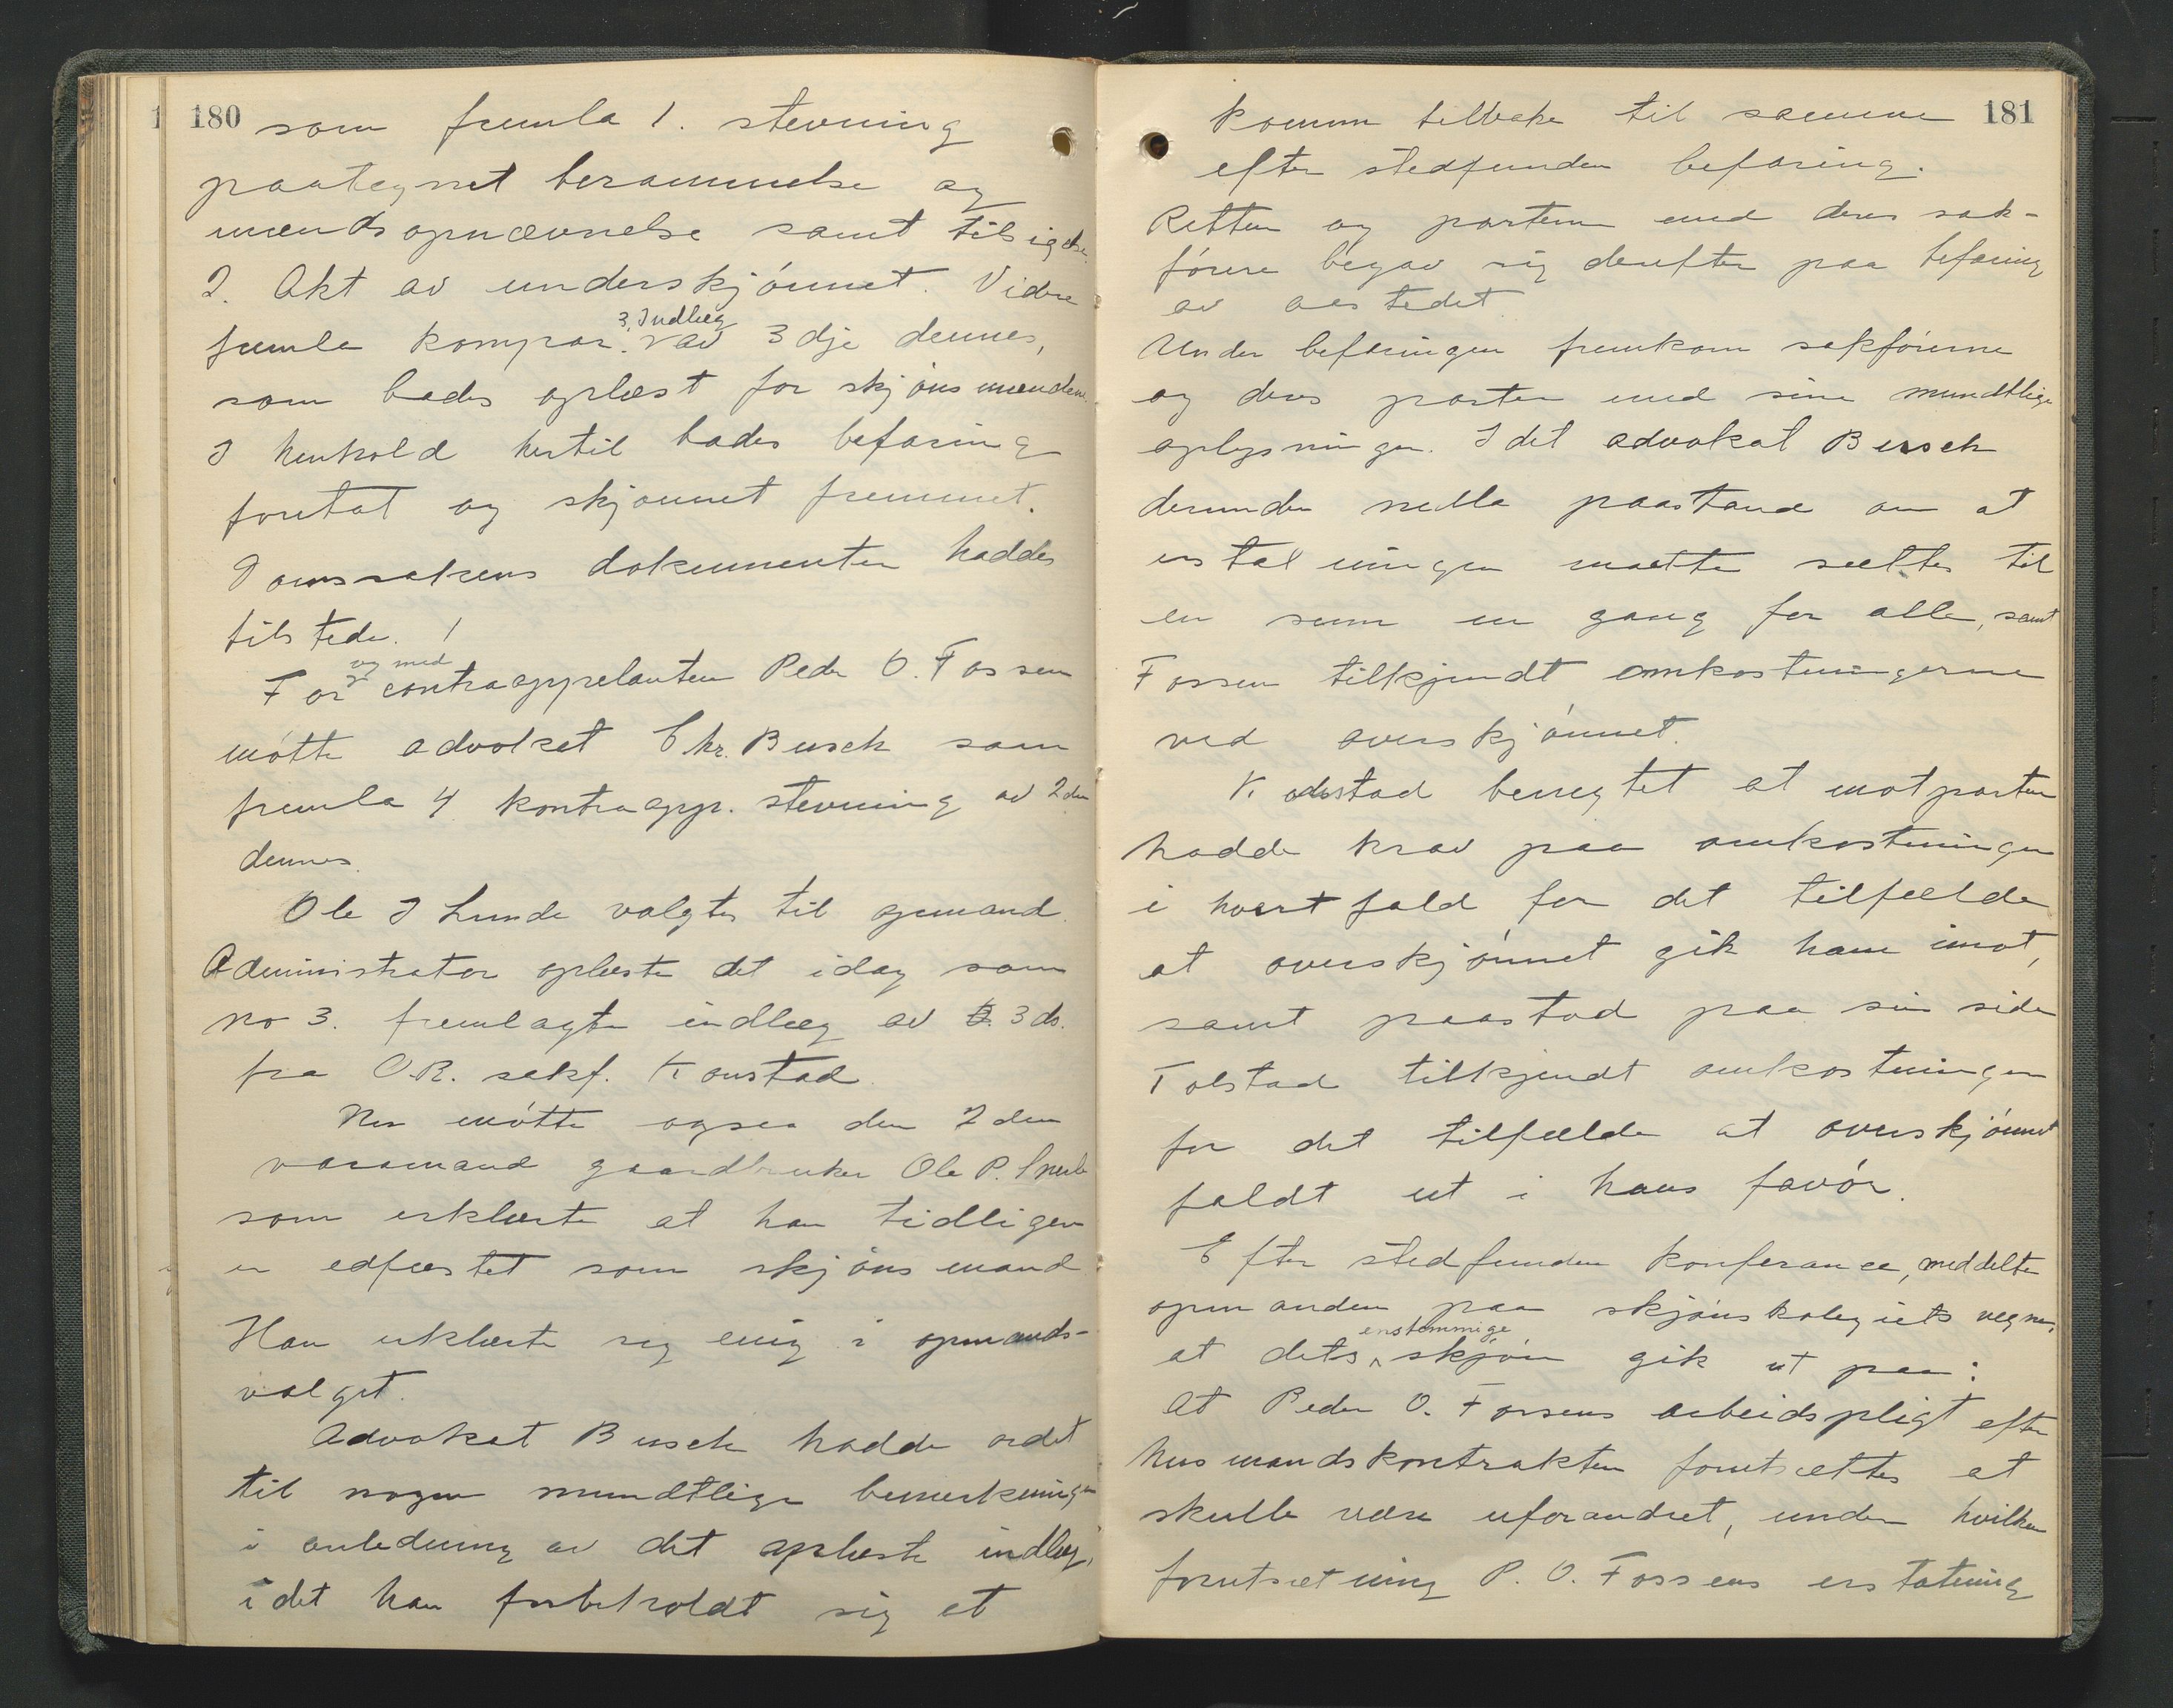 180
som fremla 1. stevning
paategnet berammelse og
mændsopnævnelse samt tilsigelse.
2. Akt av underskjønnet. Videre
fremla kompar. 3, Indlæg av 3dje dennes,
som bades oplæst for skjønsmændene.
I henhold hertil bades befaring
foretat og skjønnet fremmet.
Domssakens dokumenter haddes
tilstede. !
For og med contraappelanten Peder O. Fossen
møtte advokat Chr. Busch som
fremla 4 kontraapp. stevning av 2den
dennes.
Ole J Lunde valgtes til opmand.
Administrator oplæste det idag som
no 3. fremlagte indlæg av 3 ds.
fra O.R. sakf. Konstad.
Her møtte ogsaa den 2den
varamand gaardbruker Ole P.
som erklærte at han tidligere
er edfæstet som skjønsmand.
Han erklærte sig enig i opmands-
valget.
Advokat Busch hadde ordet
til nogen mundtlige bemerkninger
i anledning av det oplæste indlæg,
idet han forbeholdt sig at
181
komme tilbake til samme
efter stedfunden befaring.
Retten og parterne med deres sak-
førere begav sig derefter paa befaring
av aastedet.
Under befaringen fremkom sakførerne
og deres parter med sine mundtlige
oplysninger. Idet advokat Busch
derunder nedla paastand om at
erstatningen maatte sættes til
en sum en gang for alle, samt
Fossen tilkjendt omkostningerne
ved overskjønnet.
Konstad benegtet at motparten
hadde krav paa omkostninger
i hvert fald for det tilfælde
at overskjønnet gik ham imot,
samt paastod paa sin side
Tolstad tilkjendt omkostninger
for det tilfælde at overskjønnet
faldt ut i hans favør.
Efter stedfunden konferance, meddelte
opmanden paa skjønskolegiets vegne,
at dets enstemmige skjøn gik ut paa:
At Peder O. Fossens arbeidspligt efter
husmandskontrakten forutsættes at
skulle være uforandret, under hvilken
forutsætning P. O. Fossens erstatning